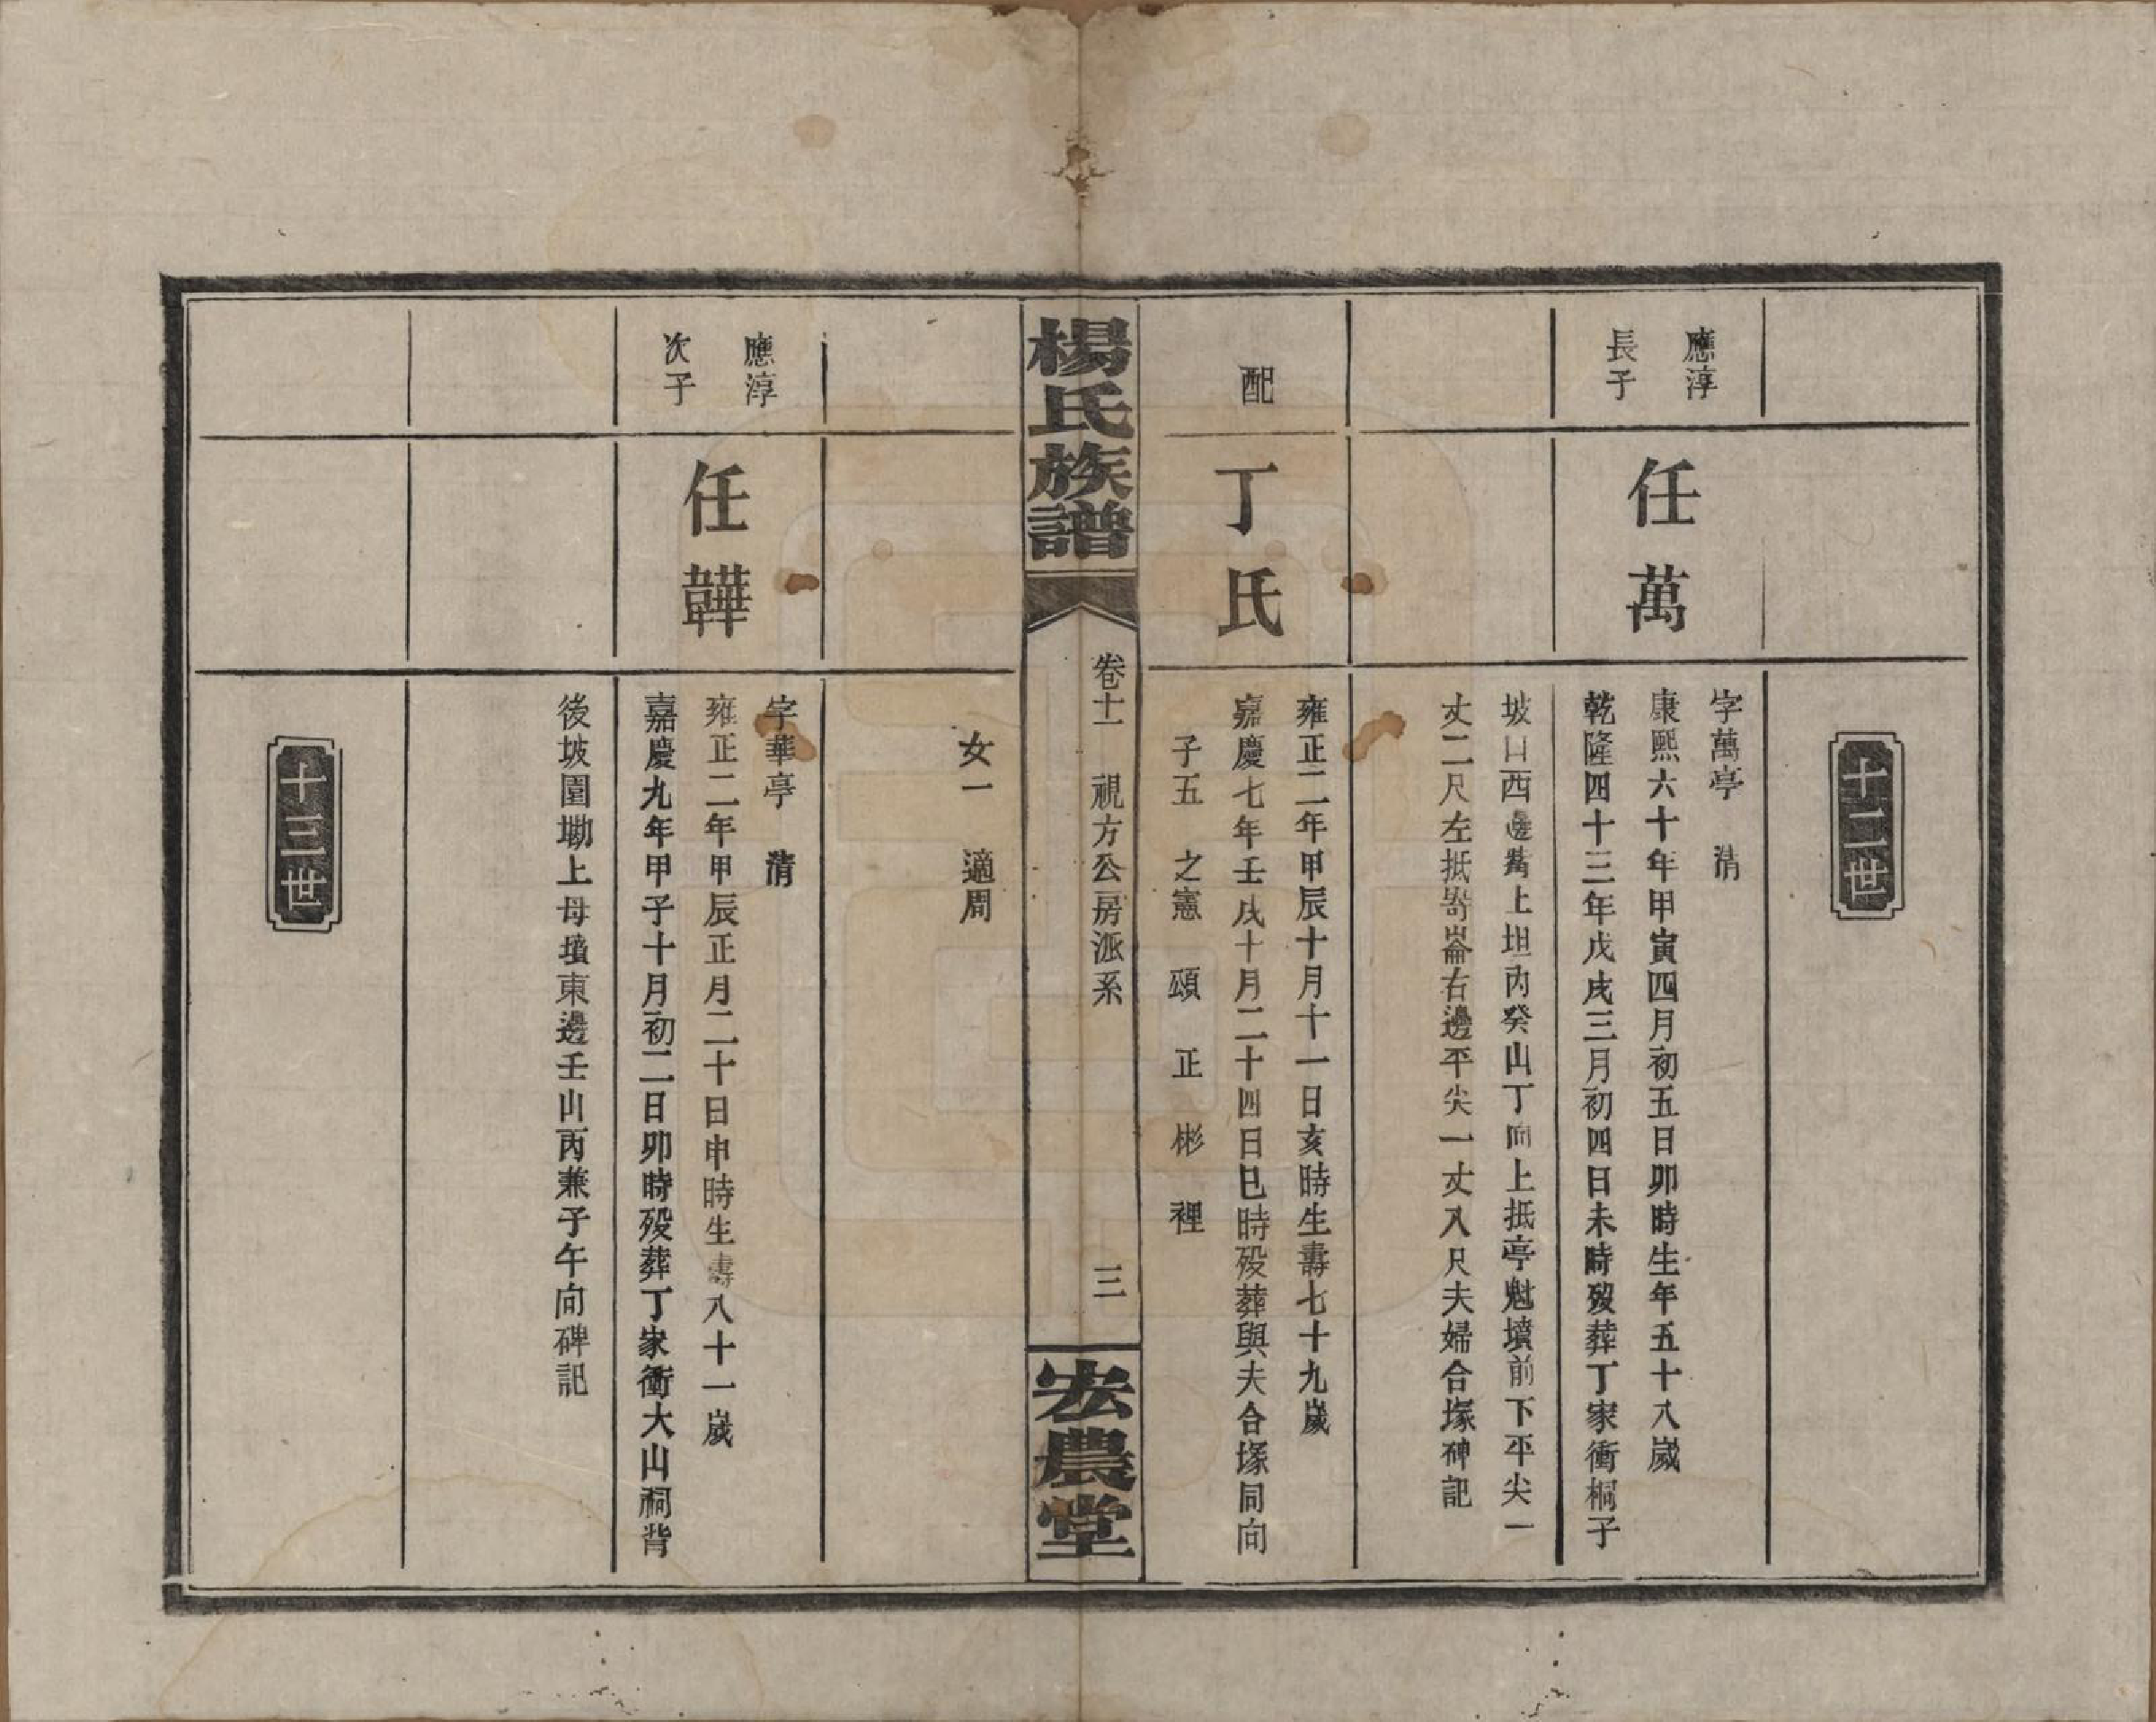 十二世
應淳
長子
任萬
字萬亭　清
康熙六十年甲寅四月初五日卯時生年五十八歲
乾隆四十三年戊戌三月初四日未時歿葬丁家衝桐子
坡口西邊上坦內癸山丁向上抵亭魁墳前下平尖一
丈二尺左抵嵜崙右邊平尖一丈八尺夫婦合塚碑記
配
丁氏
雍正二年甲辰十月十一日亥時生壽七十九歲
嘉慶七年壬戌十月二十四日巳時歿葬與夫合塚同向
子五　之憲　頌　正　彬　裡
楊氏族譜
卷十一　視方公房派系
三
宏農堂
女一　適周
應淳
次子
任韡
字華亭　清
雍正二年甲辰正月二十日申時生壽八十一歲
嘉慶九年甲子十月初二日卯時歿葬丁家衝大山祠背
後坡園墈上母墳東邊壬山丙兼子午向碑記
十三世